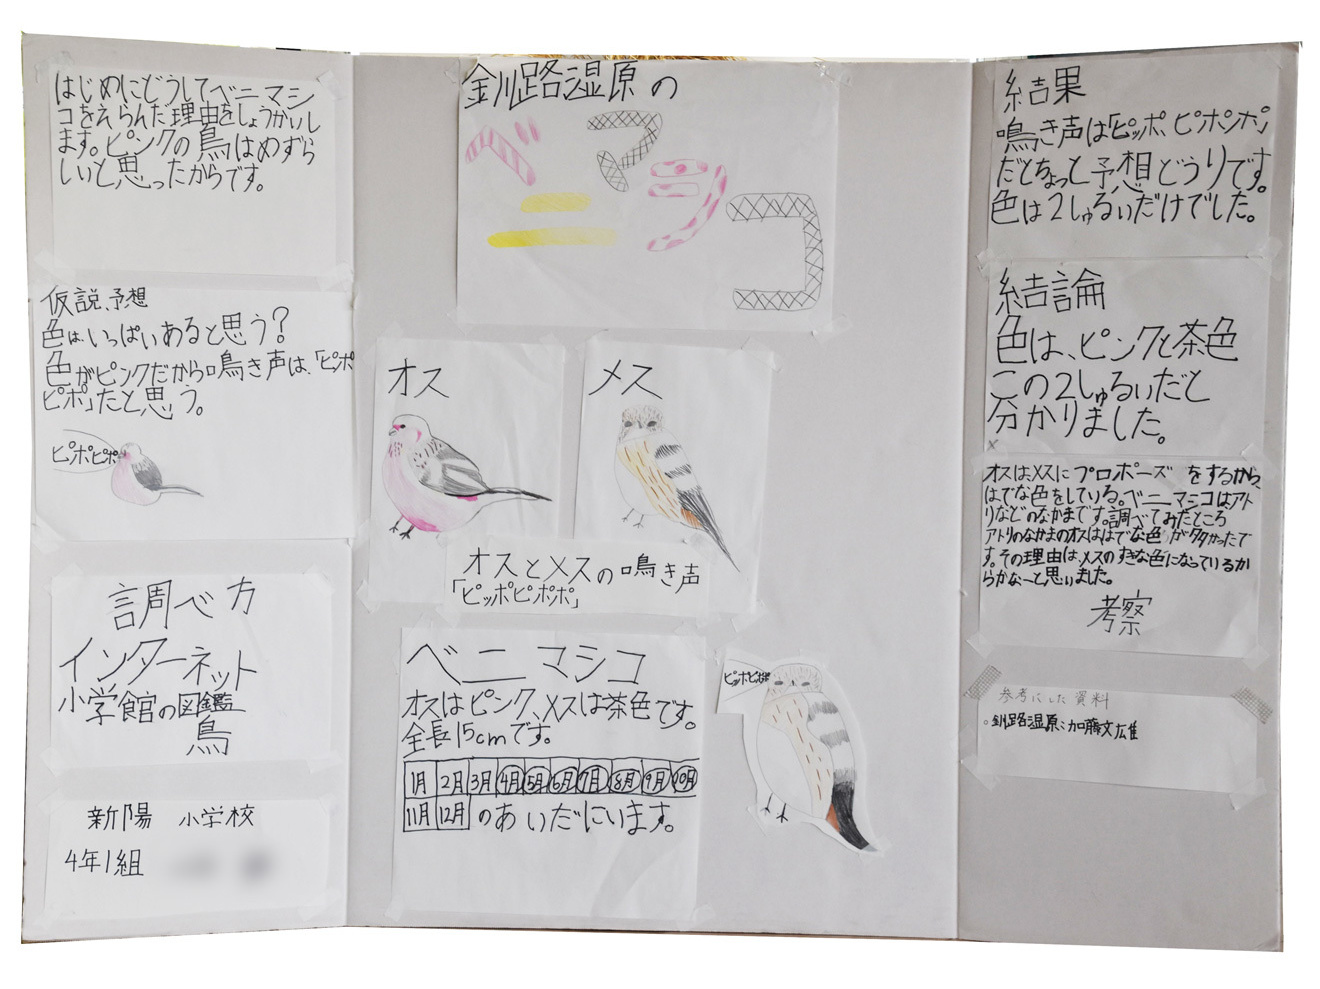 はじめにどうしてベニマシ
コをえらんだ理由をしょうかいし
ます。ピンクの鳥はめずら
しいと思ったからです。
仮説、予想
色は、いっぱいあると思う?
色がピンクだから鳴き声は、「ピポ
ピポ」だと思う。
ピポピポ
調べ方
インターネット
小学館の図鑑
鳥
新陽 小学校
4年1組
釧路湿原の
ベニマシコ
オス
メス
オスとメスの鳴き声
「ピッポピポポ」
ベニマシコ
オスはピンク、メスは茶色です。
全長15cmです。
1月 2月 3月 4月 5月 6月 7月 8月 9月 10月
11月 12月 のあいだにいます。
ピッポピポポ
結果
鳴き声は「ピッポ、ピポンポ」
だとちょっと予想どうりです。
色は2しゅるいだけでした。
結論
色は、ピンクと茶色
この2しゅるいだと
分かりました。
オスはメスにプロポーズをするから
はでな色をしている。ベニマシコはアト
リなどのなかまです。調べてみたところ
アトリのなかまのオスははでな色が多かったで
す。その理由は、メスのすきな色になっているか
らかな〜と思いました。
考察
参考にした資料
。釧路湿原:加藤文雄